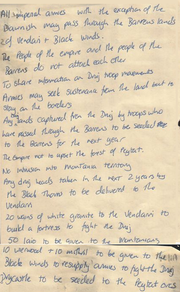 All imperial armies with the exception of the
may pass through the Barrens lands
of Verdain + Black Winds.
The People of the empire and the people of the
Barrens do not attack each other
To share information on Drag troop movements
Armies may seek sustenance from the land but to
stay on the borders
Any lands captured from the Druj by troops who
have passed through the Barrens to be seceded
to the Barrens for the next year.
The Empire not to repeat the forest of Peytaht.
No intrusion into Montaniano territory
Any druj heads taken in the next 2 years to
the Black Thorns to be delivered to the
Verdain
20 wains of white granite to the Verdain to
build a fortress to fight the Druj
50 to be given to the Montanians
10 + 10 mithril to be given to the
Black Winds to resupply armies to fight the Druj
to be seceded to the Peytaht ores